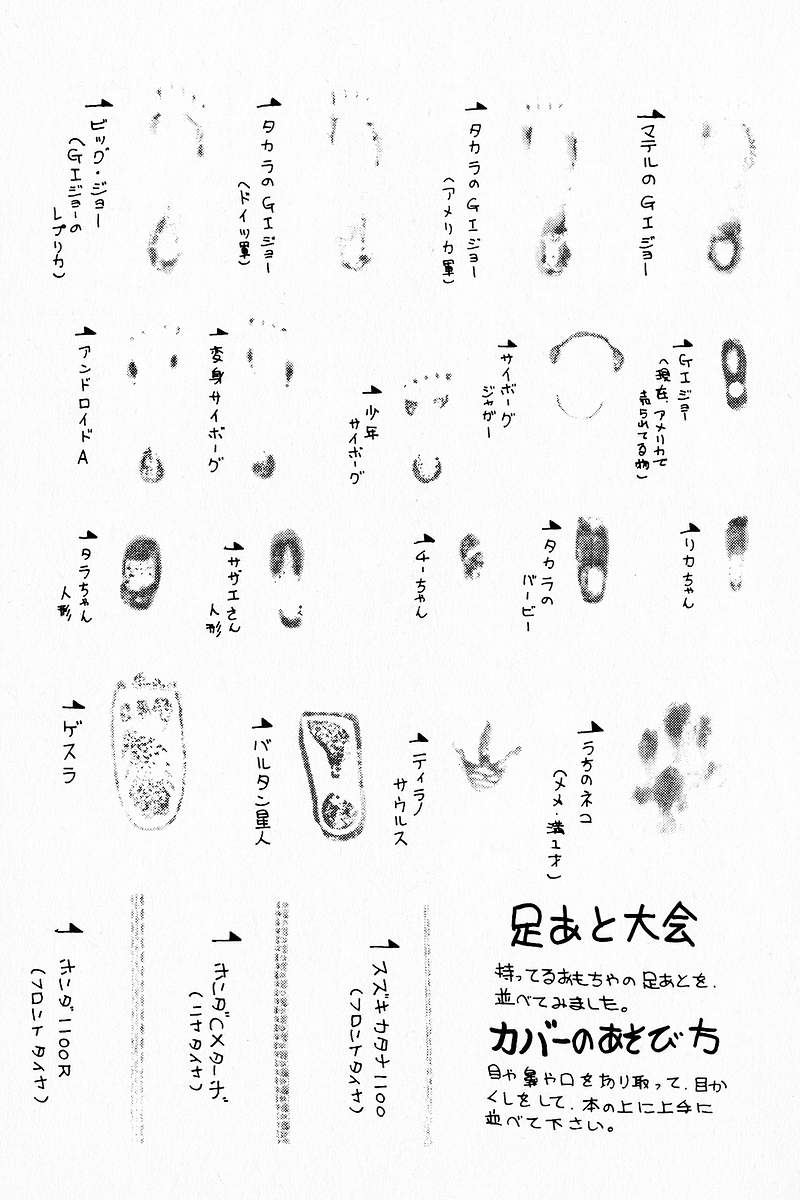 マテルのGIジョー
タカラのGIジョー
(アメリカ軍)
タカラのGIジョー
(ドイツ軍)
ビッグ・ジョー
(GIジョーの
レプリカ)
GIジョー
(現在、アメリカで
売られてる物)
サイボーグ
ジャガー
少年
サイボーグ
変身サイボーグ
アンドロイドA
リカちゃん
タカラの
バービー
チーちゃん
サザエさん
人形
タラちゃん
人形
うちのネコ
(メメ・満1才)
ティラノ
サウルス
バルタン星人
ゲスラ
足あと大会
持ってるおもちゃの足あとを、
並べてみました。
カバーのあそび方
目や鼻や口を切り取って、目か
くしをして、本の上に上手に
並べて下さい。
スズキカタナ1100
(フロントタイヤ)
ホンダCXターボ
(リヤタイヤ)
ホンダ1100R
(フロントタイヤ)